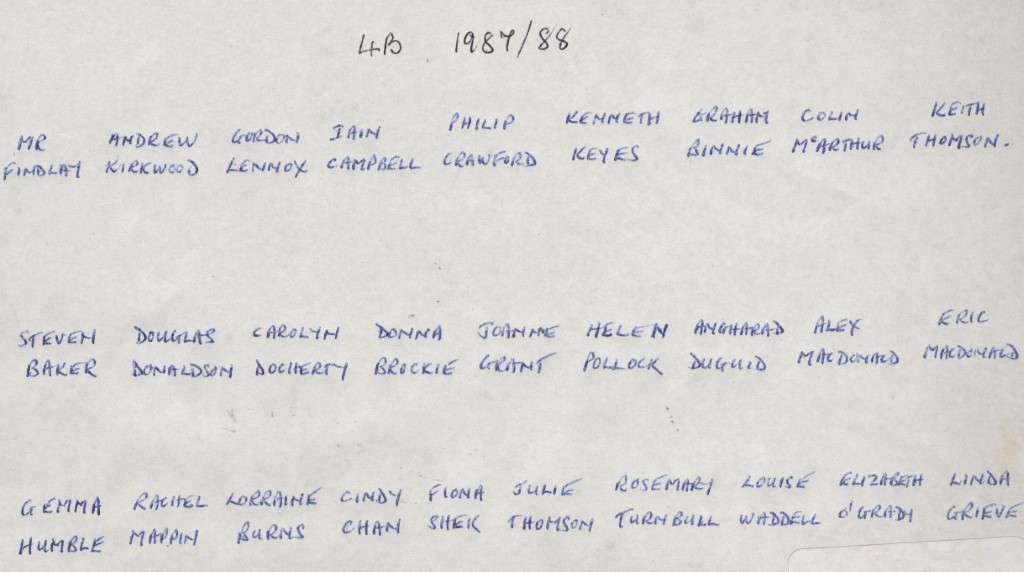 4B 1987/88
MR ANDREW GORDON IAIN PHILIP KENNETH GRAHAM COLIN KEITH
FINDLAY KIRKWOOD LENNOX CAMPBELL CRAWFORD KEYES BINNIE McARTHUR THOMSON.
STEVEN DOUGLAS CAROLYN DONNA JOANNE HELEN ANGHARAD ALEX ERIC
BAKER DONALDSON DOCHERTY BROCKIE GRANT POLLOCK DUGUID MACDONALD MACDONALD
GEMMA RACHEL LORRAINE CINDY FIONA JULIE ROSEMARY LOUISE ELIZABETH LINDA
HUMBLE MAPPIN BURNS CHAN SHEK THOMSON TURNBULL WADDELL O'GRADY GRIEVE